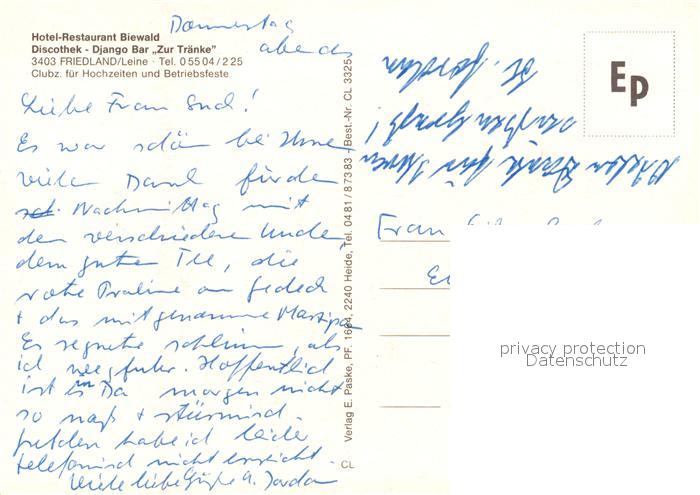 Donnerstag
abends
Hotel-Restaurant Biewald
Discothek - Django Bar „Zur Tränke"
3403 FRIEDLAND/Leine · Tel. 0 55 04 / 2 25
Clubz. für Hochzeiten und Betriebsfeste
Liebe Frau
Es war schön bei Ihnen
vielen Dank für den
Nachmittag mit
den verschiedenen
dem guten Tee, die
rote Praline am Gedeck
+ das mitgenommene Marzipan
Es regnete schlimm, als
ich wegfuhr. Hoffentlich
ist es in Da morgen nicht
so naß + stürmisch.
habe ich leider
telefonisch nicht erreicht.
Viele liebe Grüße A. Jordan
Verlag E. Paske, PF. 1664, 2240 Heide, Tel. 04 81 / 8 73 83 / Best.-Nr. CL 3325
CL
EP
Vielen Dank für Ihren
Frau
privacy protection
Datenschutz